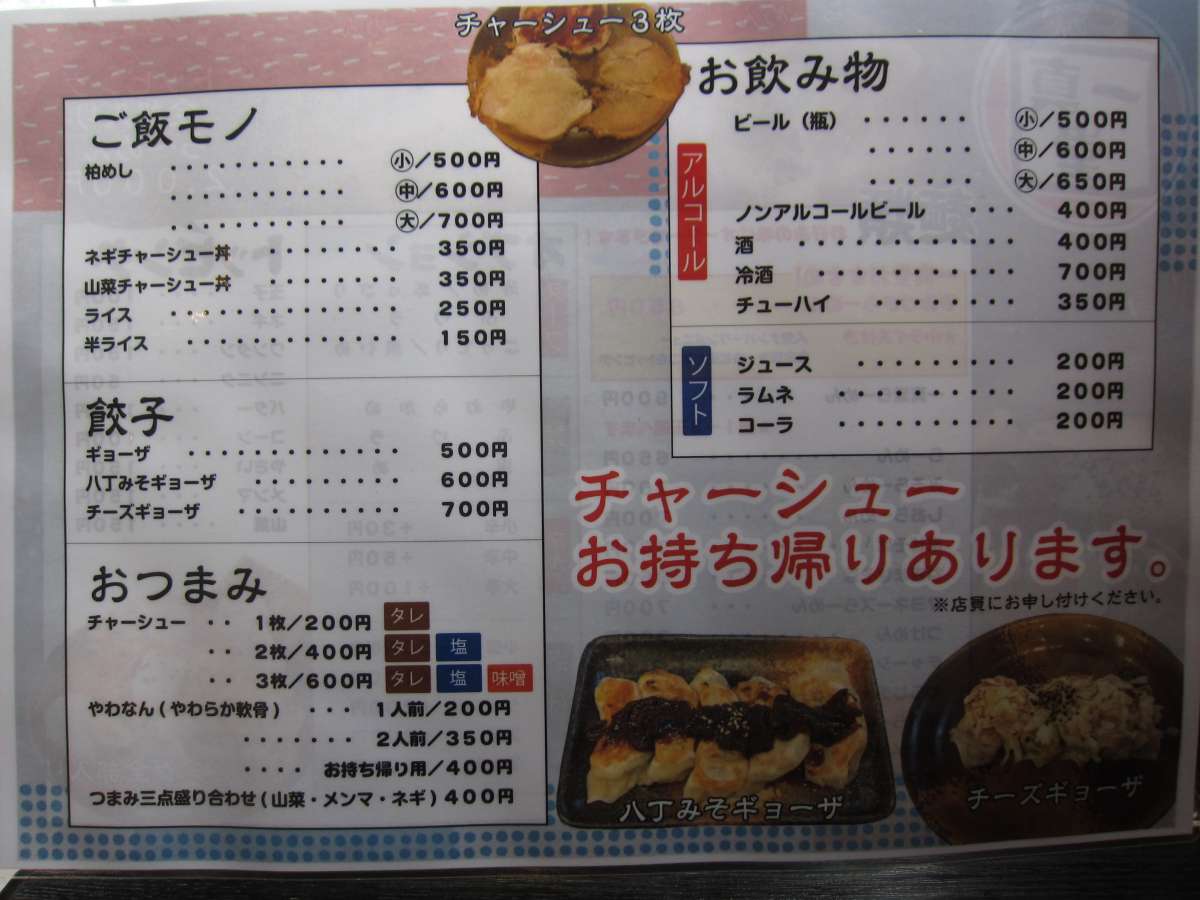 チャーシュー3枚
ご飯モノ
柏めし ・・・・・・・・・・・ ㊙小／500円
・・・・・・・・・・・ ㊥／600円
・・・・・・・・・・・ 大／700円
ネギチャーシュー丼 ・・・・・・・ 350円
山菜チャーシュー丼 ・・・・・・・ 350円
ライス ・・・・・・・・・・・・・・ 250円
半ライス ・・・・・・・・・・・・・ 150円
餃子
ギョーザ ・・・・・・・・・・・・・ 500円
八丁みそギョーザ ・・・・・・・・・ 600円
チーズギョーザ ・・・・・・・・・・ 700円
おつまみ
チャーシュー ・・ 1枚／200円 タレ
・・ 2枚／400円 タレ 塩
・・ 3枚／600円 タレ 塩 味噌
やわなん(やわらか軟骨) ・・・ 1人前／200円
・・・・・・・ 2人前／350円
・・・・ お持ち帰り用／400円
つまみ三点盛り合わせ(山菜・メンマ・ネギ) 400円
お飲み物
アルコール
ビール（瓶） ・・・・・・ 小／500円
・・・・・・ ㊥／600円
・・・・・・ 大／650円
ノンアルコールビール ・・・ 400円
酒 ・・・・・・・・・・・・ 400円
冷酒 ・・・・・・・・・・・ 700円
チューハイ ・・・・・・・・ 350円
ソフト
ジュース ・・・・・・・・ 200円
ラムネ ・・・・・・・・・ 200円
コーラ ・・・・・・・・・ 200円
チャーシュー
お持ち帰りあります。
※店員にお申し付けください。
八丁みそギョーザ
チーズギョーザ